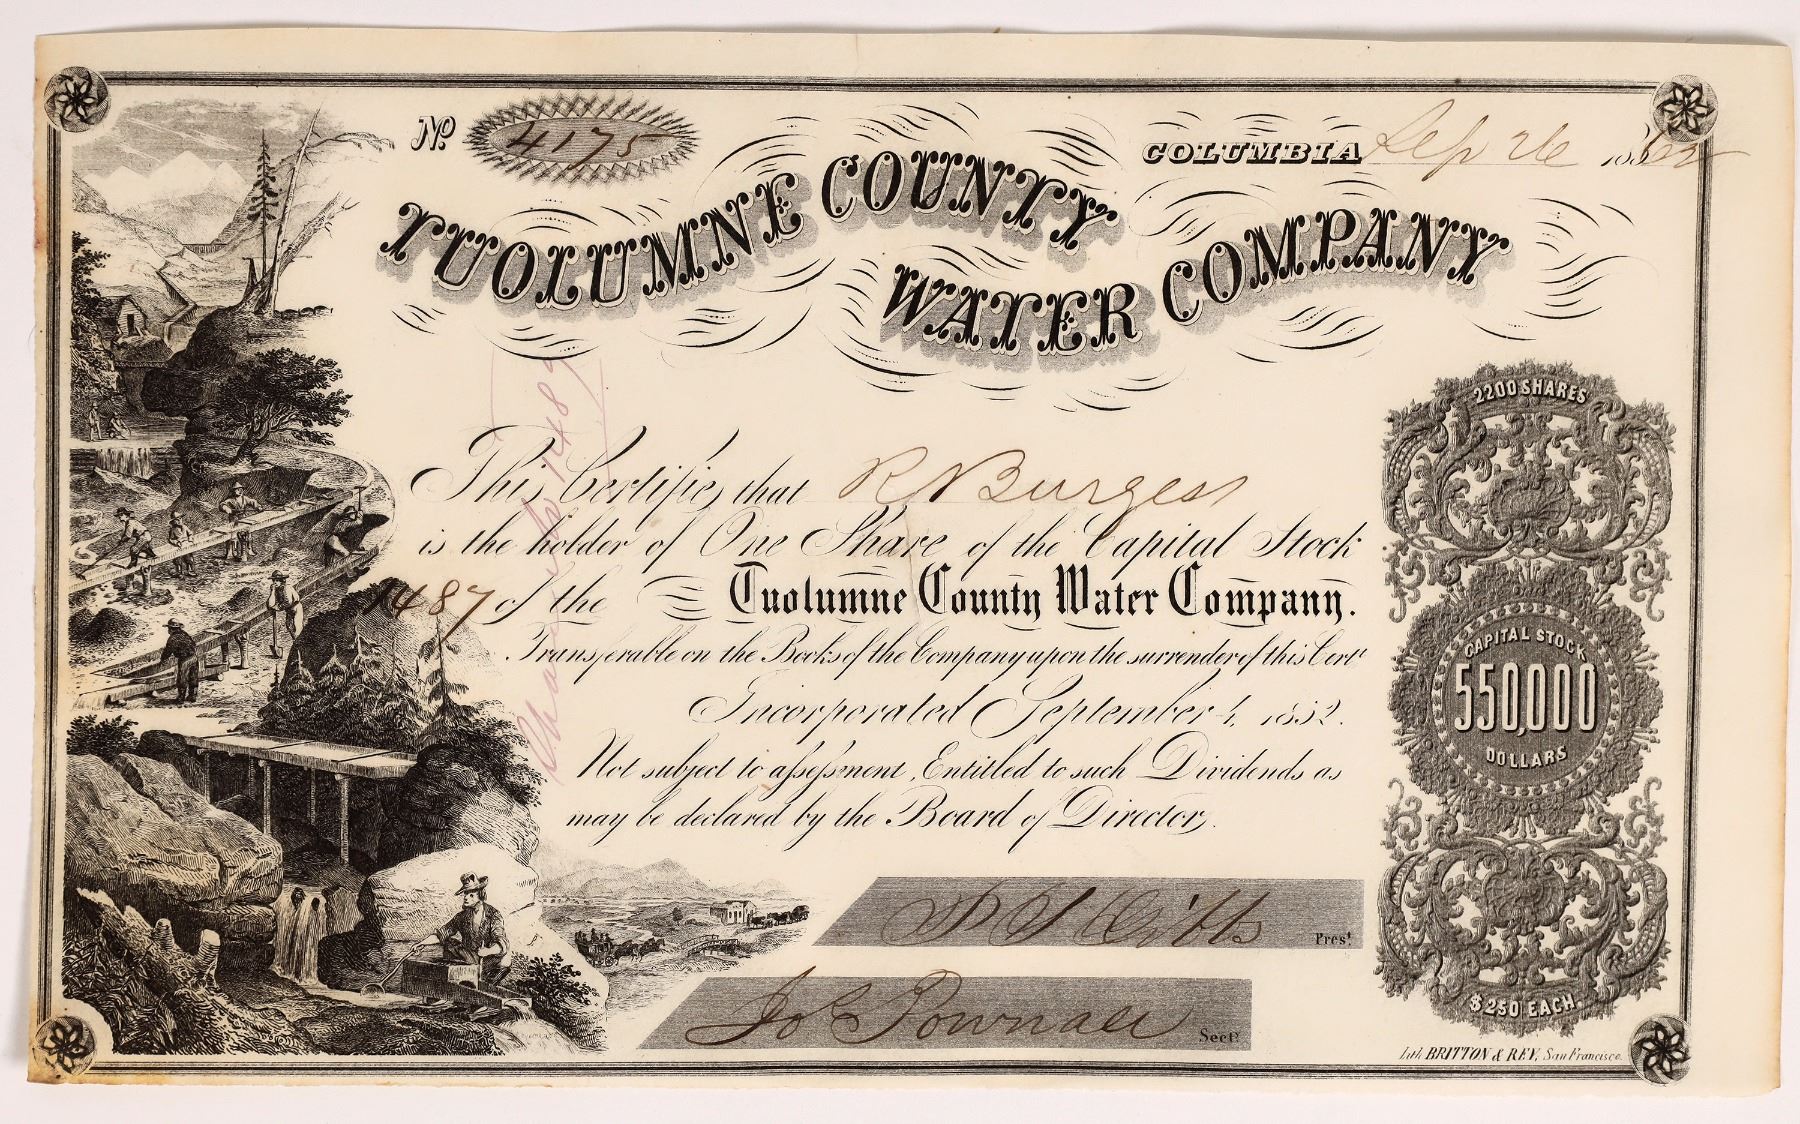 No. 4175
COLUMBIA Sep 26 1862
TUOLUMNE COUNTY
WATER COMPANY
2200 SHARES
This Certifies that R N Burgess
is the holder of One Share of the Capital Stock
1487 of the Tuolumne County Water Company.
Transferable on the Books of the Company upon the surrender of this Cert
Incorporated September 4, 1852.
Not subject to assessment, Entitled to such Dividends as
may be declared by the Board of Directors.
CAPITAL STOCK
550,000
DOLLARS
Prest.
Jos Pownall Secty.
$250 EACH.
Lith. BRITTON & REY, San Francisco.
1487